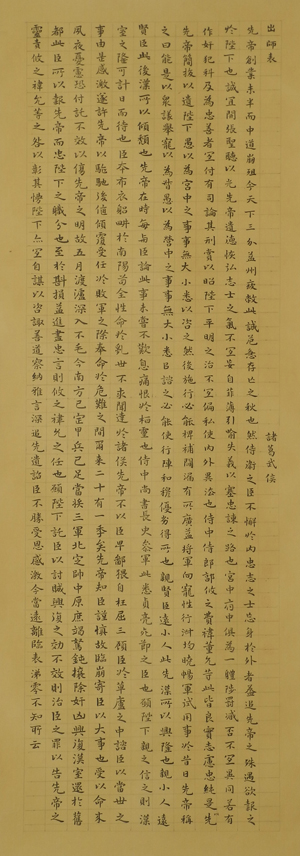 出師表 諸葛武侯
先帝創業未半而中道崩殂今天下三分益州疲敝此誠危急存亡之秋也然侍衛之臣不懈於內忠志之士忘身於外者蓋追先帝之殊遇欲報之
於陛下也誠宜開張聖聽以光先帝遺德恢弘志士之氣不宜妄自菲薄引喻失義以塞忠諫之路也宮中府中俱為一體陟罰臧否不宜異同若有
作奸犯科及為忠善者宜付有司論其刑賞以昭陛下平明之治不宜偏私使內外異法也侍中侍郎郭攸之費禕董允等此皆良實志慮忠純是以先
先帝簡拔以遺陛下愚以為宮中之事事無大小悉以咨之然後施行必能裨補闕漏有所廣益將軍向寵性行淑均曉暢軍試用事於昔日先帝稱
之曰能是以眾議舉寵以為督愚以為營中之事事無大小悉以諮之必能使行陣和穆優劣得所也親賢臣遠小人此先漢所以興隆也親小人遠
賢臣此後漢所以傾頹也先帝在時每與臣論此事未嘗不歎息痛恨於桓靈也侍中尚書長史參軍此悉貞亮死節之臣也願陛下親之信之則漢
室之隆可計日而待也臣本布衣躬耕於南陽苟全性命於亂世不求聞達於諸侯先帝不以臣卑鄙猥自枉屈三顧臣於草廬之中諮臣以當世之
事由是感激遂許先帝以馳驅後值傾覆受任於敗軍之際奉命於危難之間爾來二十有一年矣先帝知臣謹慎故臨崩寄臣以大事也受命以來
夙夜憂慮恐付託不效以傷先帝之明故五月渡瀘深入不毛今南方已定甲兵已足當獎三軍北定師中原庶竭駑鈍攘除奸凶興復漢室還於舊
都此臣所以報先帝而忠陛下之職分也至於斟損益進盡忠言則攸之禕允之任也願陛下託臣以討賊興復之效不效則治臣之罪以告先帝之
靈責攸之禕允等之咎以彰其慢陛下亦宜自謀以咨諏善道察納雅言深追先遺詔臣不勝受恩感激今當遠離臨表涕零不知所云